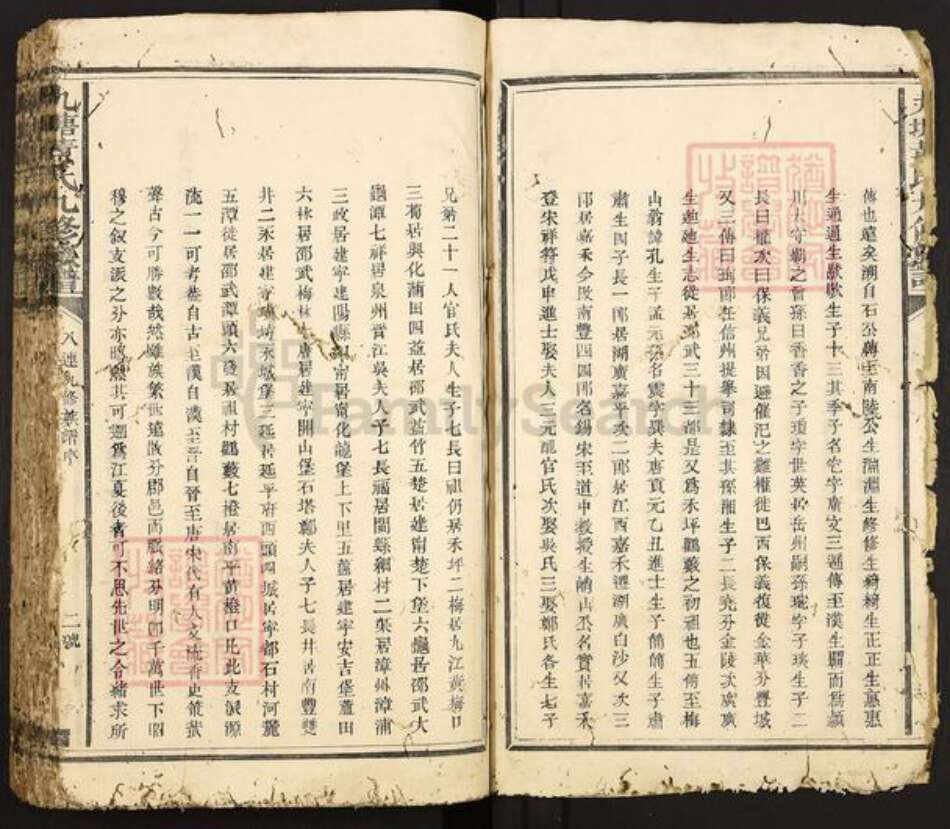 傳也遠矣溯自石公薄玉南陸公生淵淵生修修生綺綺生正正生惠惠
生通通生猷猷生子十三其季子名宅字廣文三遞傳至漢生霸而爲潁
川太守霸之曾孫曰香香之子瓊字世英居岳州嗣孫琬字子琰生子二
長曰權次曰保義兄弟因避催汜之難權徙巴西保義復從金華分豐城
又三傳曰琦郎任信州提舉司隸至其孫湘生子二長堯分金陵次廣廣
生迪迪生志從居邵武三十三都是又爲禾坪鸛藪之初祖也五傳至梅
山翁諱孔生子孟元名震字異夫唐貢元乙丑進士生子簡簡生子肅
肅生四子長一郎居湖廣嘉平次二郎居江西嘉禾遷湖廣白沙又次三
郎居嘉禾今改南豐四四郎名錫宋至道中教授生峭山丕名實居嘉禾
登宋祥符戊申進士娶夫人三元配官氏次娶吳氏三娶鄭氏各生七子
兄弟二十一人官氏夫人生子七長曰祖仍居禾坪二梅居九江黃梅口
三荀居興化莆田四益居邵武蓋竹五楚居建甯楚下堡六龜居邵武大
龜潭七祥居泉州晉江吳夫人子七長福居閩縣鋼村二葉居漳州漳浦
三政居建寧建陽縣四甯居甯化龍堡上下里五蘆居建寧安吉堡蘆田
六林居邵武梅林七唐居建寧開山堡石塔鄭夫人子七長井居南豐雙
井二禾居建寧瑤埼永城堡三延居延平府西頭四城居寧都石村河龍
五潭徙居邵武潭頭六發居祖村鸛藪七橙居南平黃橙口此此支派源
流一一可考者自古至漢自漢至晉自晉至唐宋代有人文流香史策猷
聲古今可勝數哉然雖族繁世遠散分郡邑而脈絡分明即千萬世下昭
穆之敘支派之分亦瞭然其可溯爲江夏後者可不思先世之令緒求所
九修族譜
八連九修族譜序
二號